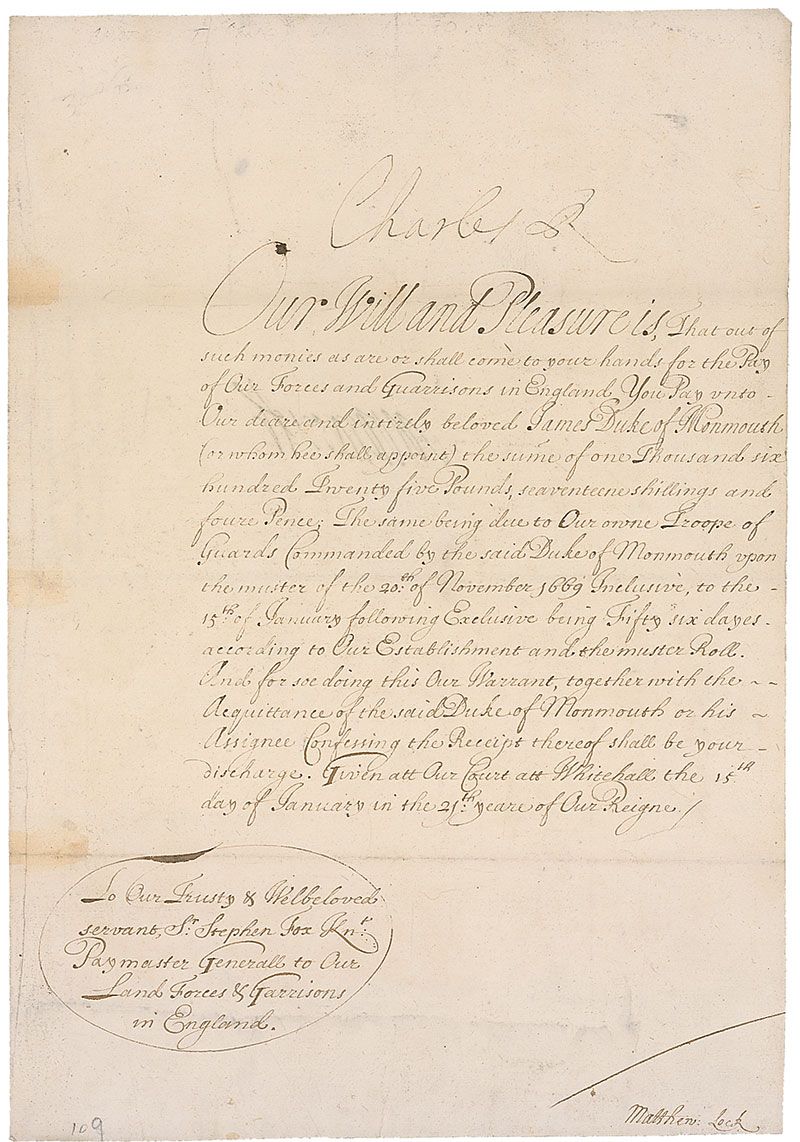 Charles R
Our Will and Pleasure is, That out of
such monies as are or shall come to your hands for the Pay
of Our Forces and Guarrisons in England, You Pay vnto -
Our deare and intirely beloved James Duke of Monmouth
(or whom hee shall appoint) the sum̄e of one Thousand six
hundred Twenty five Pounds, seaventeene shillings and
foure Pence; The same being due to Our owne Troope of
Guards Commanded by the said Duke of Monmouth vpon
the muster of the 20th of November 1669 Inclusive, to the -
15th of January following Exclusive being Fifty six dayes -
according to Our Establishment and the muster Roll.
And for soe doing this Our Warrant, together with the - ~
Acquittance of the said Duke of Monmouth or his ~
Assignee Confessing the Receipt thereof shall be your -
discharge. Given att Our Court att Whitehall the 15th
day of January in the 21th yeare of Our Reigne./
To Our Trusty & Welbeloved
servant, Sr Stephen Fox Knt
Paymaster Generall to Our
Land Forces & Garrisons
in England.
Matthew: Lock
109